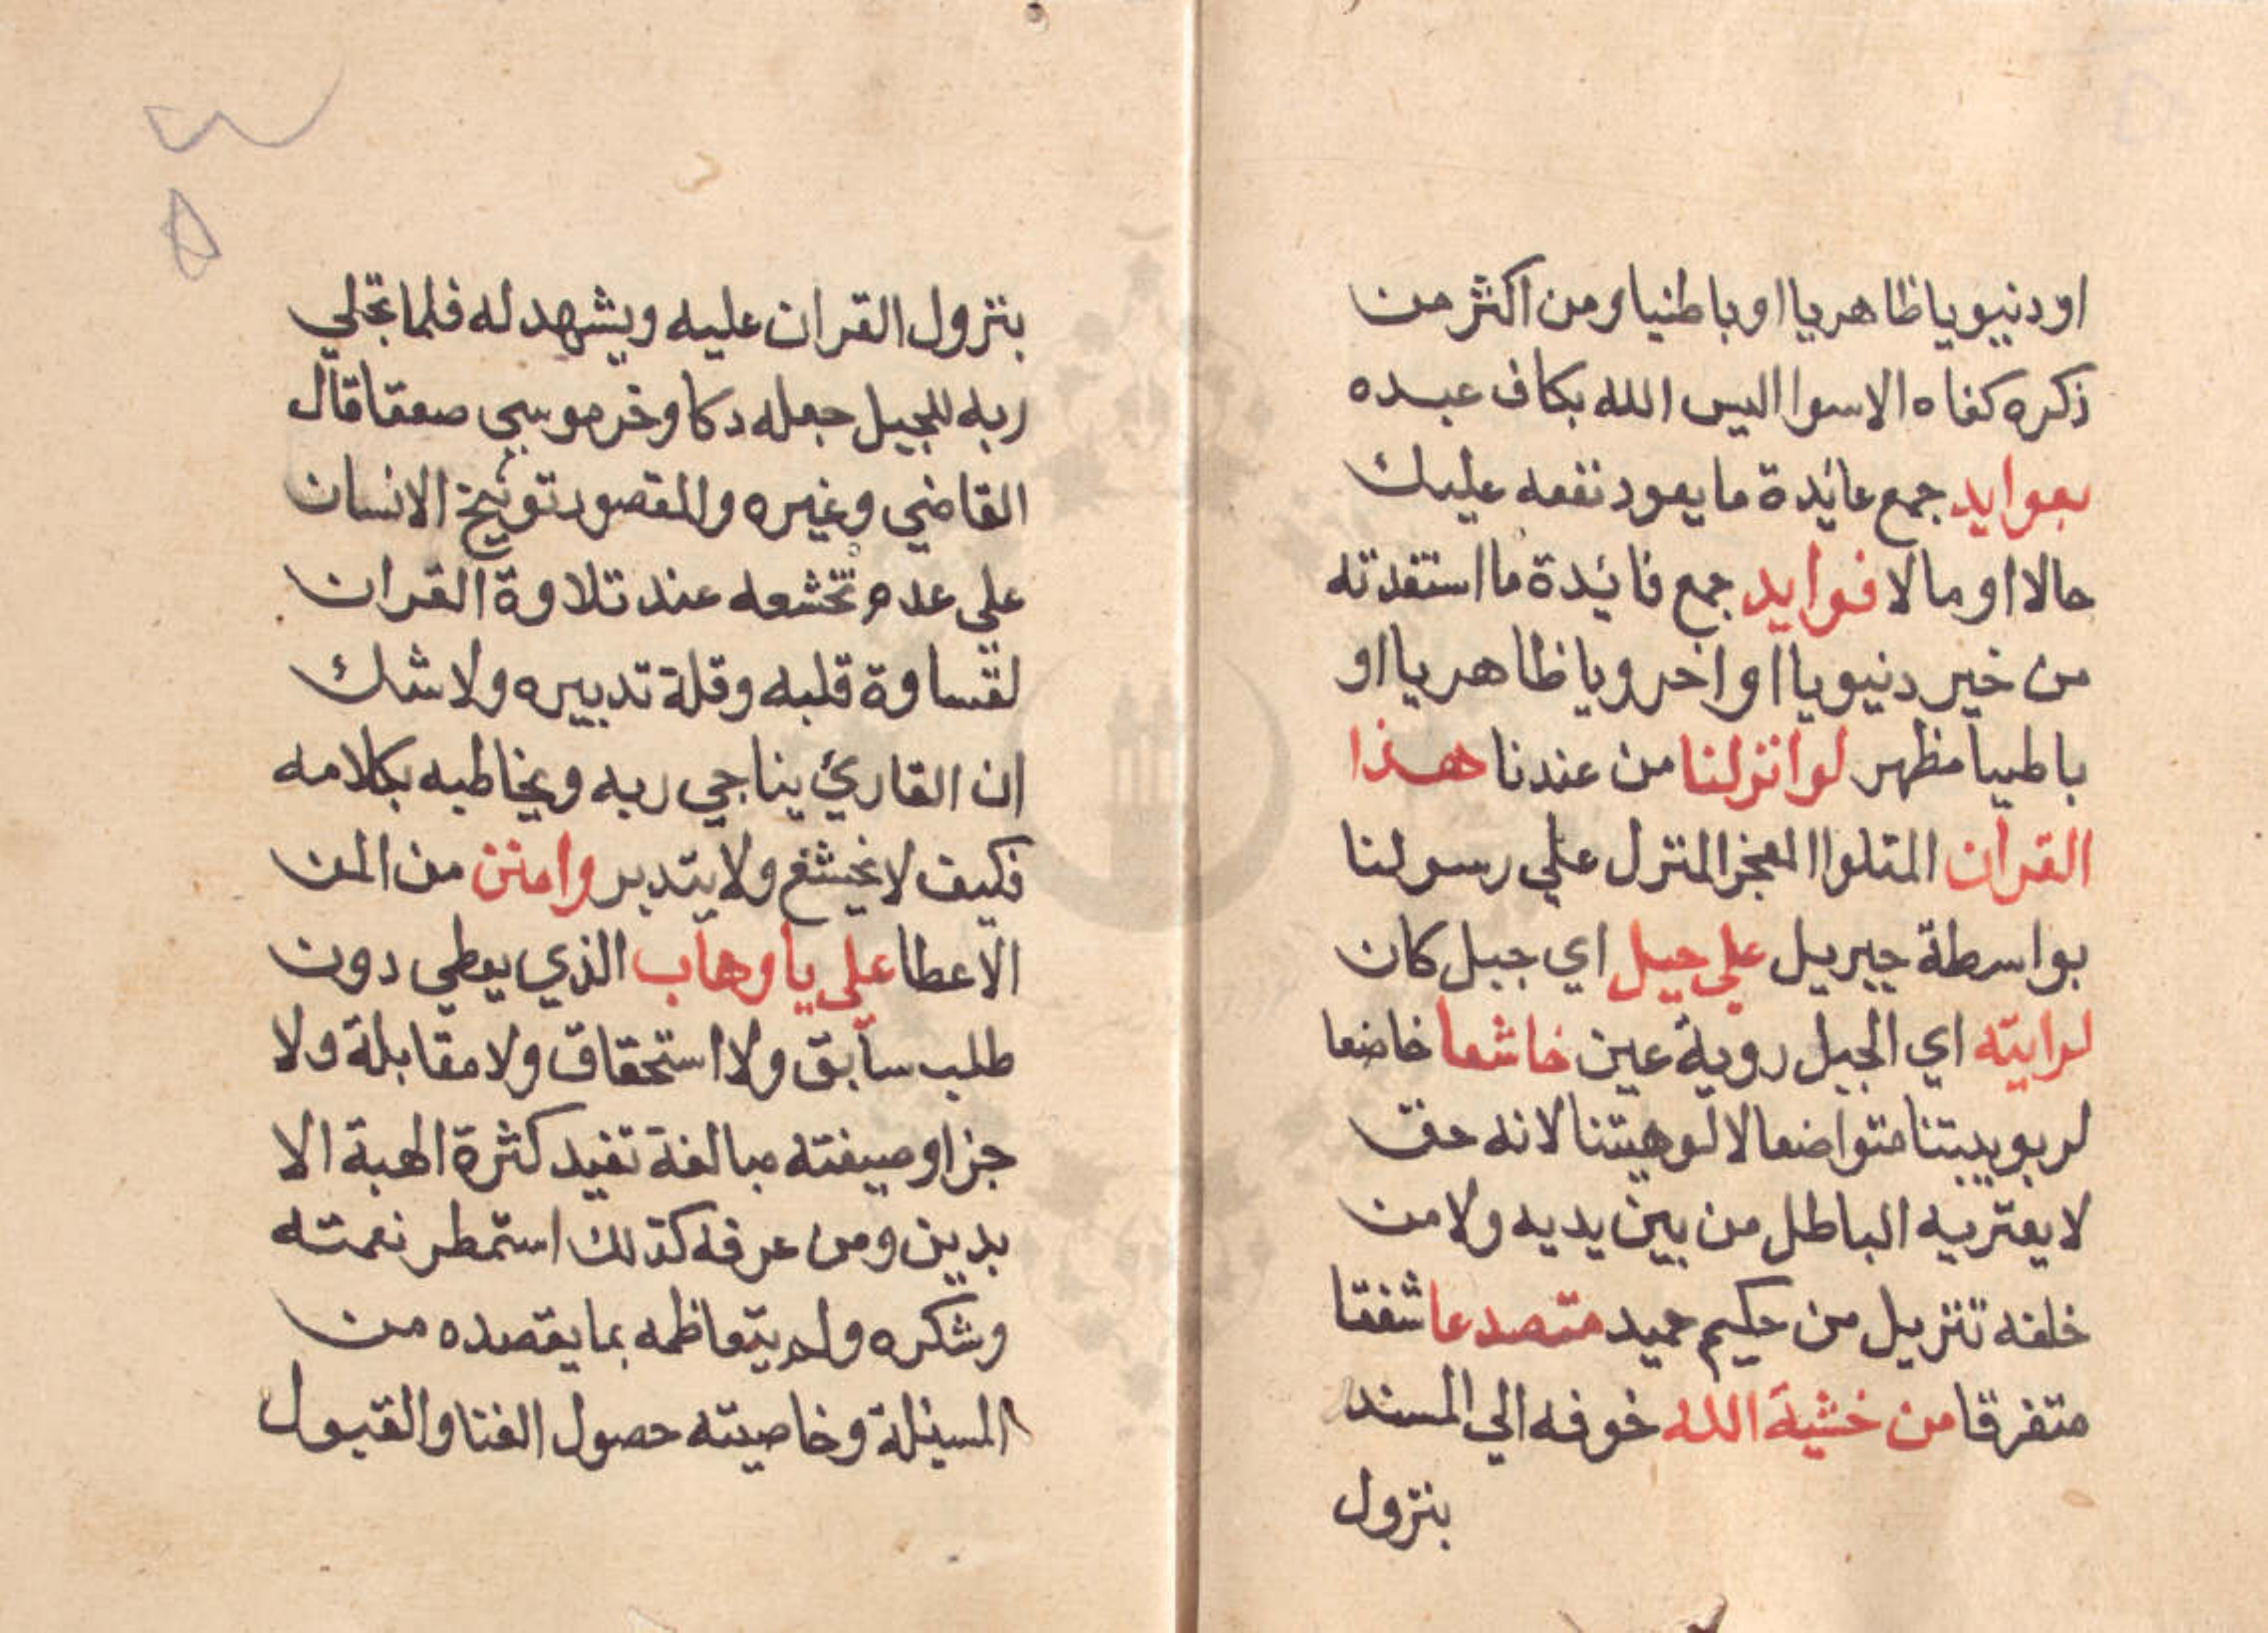 او دنيويا ظاهريا او باطنيا ومن اكثر من
ذكره كفاه الاسوا اليس الله بكاف عبده
بعوايد جمع عائدة ما يعود نفعه عليك
حالا او مالا فوايد جمع فائدة ما استفدته
من خير دنيويا او اخرويا ظاهريا او
باطنيا مظهر لو انزلنا من عندنا هذا
القران المتلوا المعجز المنزل علي رسولنا
بواسطة جبريل علي جبل اي جبل كان
لرايته اي الجبل روية عين خاشعا خاضعا
لربوبيتنا متواضعا لالوهيتنا لانه حق
لا يعتريه الباطل من بين يديه ولا من
خلفه تنزيل من حكيم حميد متصدعا شققا
متفرقا من خشية الله خوفه الي المسند
بنزول
بنزول القران عليه ويشهد له فلما تجلي
ربه للجبل جعله دكا وخر موسي صعقا قال
القاضي وغيره والمقصود توبيخ الانسان
علي عدم تخشعه عند تلاوة القران
لقساوة قلبه وقلة تدبيره ولا شك
ان القارئ يناجي ربه ويخاطبه بكلامه
فكيف لا يخشع ولا يتدبر وامنن من المن
الاعطا علي يا وهاب الذي يعطي دون
طلب سابق ولا استحقاق ولا مقابلة ولا
جزا وصيغته مبالغة تفيد كثرة الهبة الا
بدين ومن عرفه كذلك استمطر نعمته
وشكره ولم يتعاظمه بما يقصده من
المسئلة وخاصيته حصول الغنا والقبول